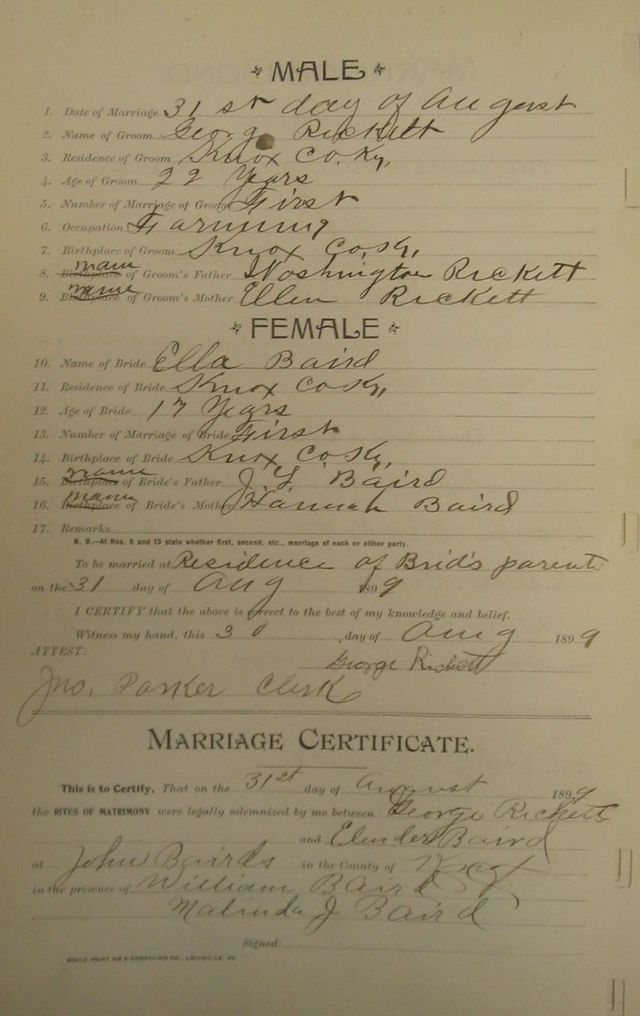 MALE
1. Date of Marriage 31st day of August
2. Name of Groom George Rickett
3. Residence of Groom Knox Co. Ky,
4. Age of Groom 22 Years
5. Number of Marriage of Groom First
6. Occupation Farming
7. Birthplace of Groom Knox Co, Ky,
8. Birthplace name of Groom's Father Washington Rickett
9. Birthplace name of Groom's Mother Ellen Rickett
FEMALE
10. Name of Bride Ella Baird
11. Residence of Bride Knox Co Ky,
12. Age of Bride 17 Years
13. Number of Marriage of Bride First
14. Birthplace of Bride Knox, Co, Ky,
15. Birthplace name of Bride's Father J. L. Baird
16. Birthplace name of Bride's Mother Hannah Baird
17. Remarks
N. B.—At Nos. 5 and 13 state whether first, second, etc., marriage of each or either party.
To be married at Residence of Brid's parents
on the 31 day of Aug 1899
I CERTIFY that the above is correct to the best of my knowledge and belief.
Witness my hand, this 30, day of Aug 1899
ATTEST: George Rickett
Jno. Parker Clerk
MARRIAGE CERTIFICATE.
This is to Certify, That on the 31st day of August 1899
the RITES OF MATRIMONY were legally solemnized by me between George Rickett
and Elender Baird
at John Bairds in the County of Knox
in the presence of William Baird
Malinda J Baird
Signed: